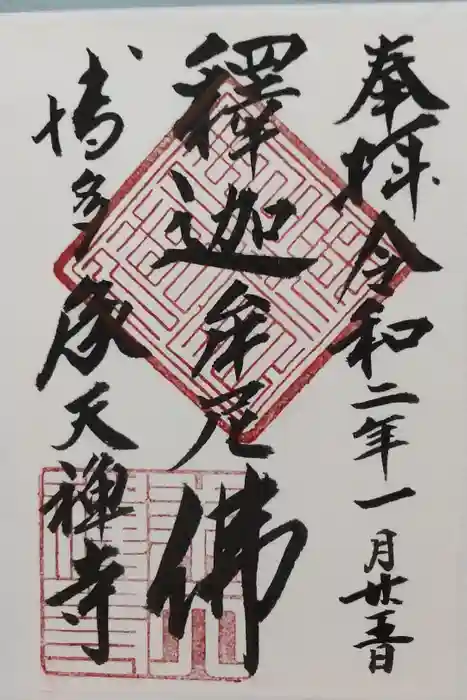 奉拝令和二年一月廿五日
釋迦牟尼佛
博多承天禅寺